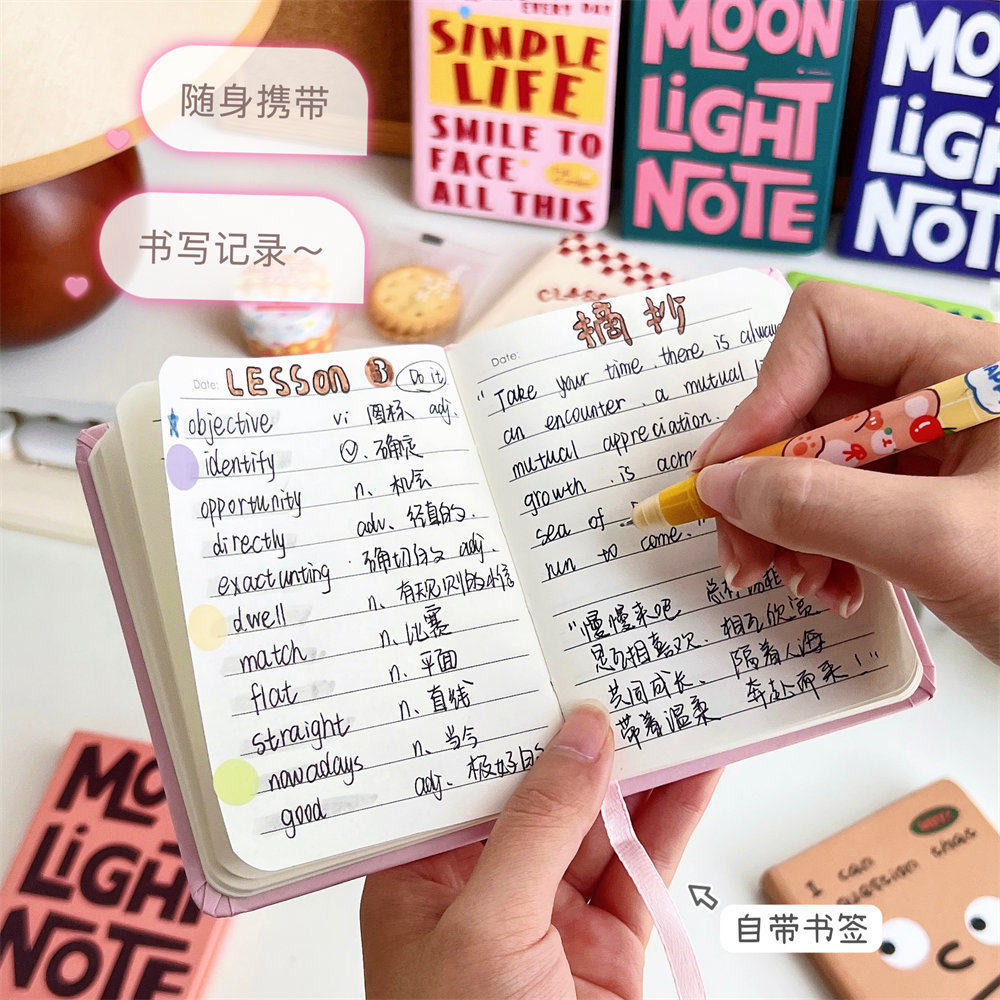 随身携带
书写记录～
EVERY DAY
SIMPLE
LIFE
SMILE TO
FACE
ALL THIS
MOON
LIGHT
NOTE
MO
LIGH
NOT
CLASS
Date: LESSON 3 Do it
objective vi 图标 adj.
identify v. 确定
opportunity n. 机会
directly adv. 径直的.
exactunting 确切的 adj.
dwell n. 有规则的
match n. 比赛
flat n. 平面
straight n. 直线
nawadays n. 当今
good adj. 极好的
Date: 摘抄
"Take your time. there is always
an encounter. a mutual
mutual appreciation.
growth. is
sea of
run to come.
"慢慢来吧
是互相喜欢. 相互欣赏
共同成长、 隔着人海
带着温柔 奔赴而来！"
MO
LIGH
NOTE
I can
question
自带书签